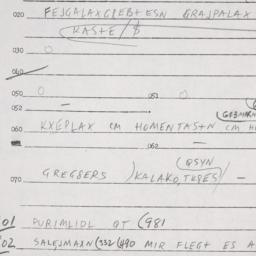 020 FEJGALAXGREBTESN GRAJPALAX
RASTE/$
030 O
040
050 O 051 O
052 —
060 KXEPLAX CM HOMENTASTN CM
062 —
QSYN
070 GREGBERS )KALAKO, TEBES/ —
01 PURIMLIDL QT (981
02 SALEJMAXN(332 (490 MIR FLEGT ES A